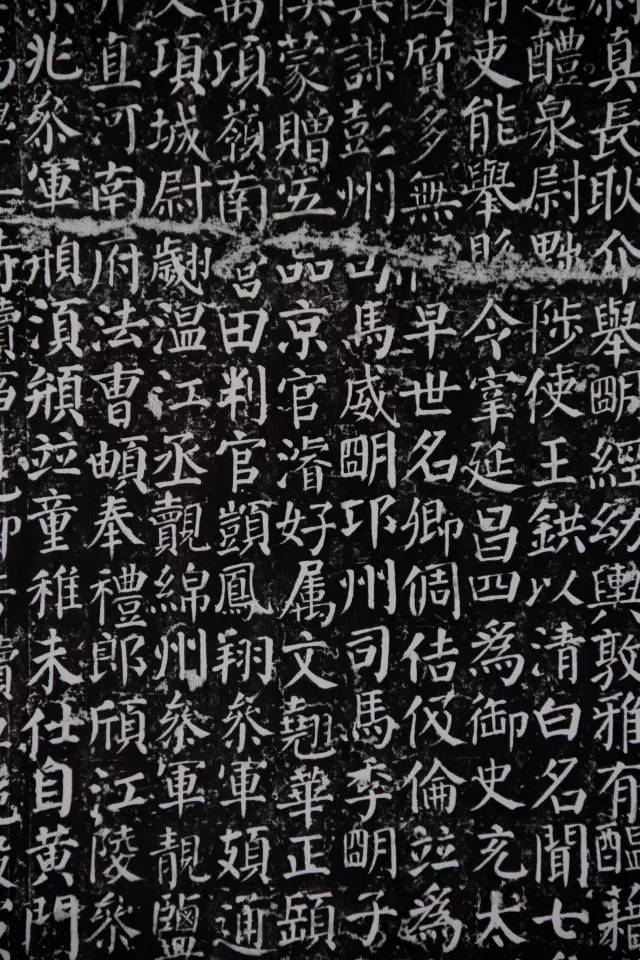 真長耿介舉明經幼輿敦雅有醖藉
醴泉尉黜陟使王鉷以清白名聞七
吏能舉縣令宰延昌四爲御史充太
質多無祿早世名卿倜佶伋倫並爲
謀彭州司馬威明邛州司馬季明子
蒙贈五品京官濬好属文翹華正頤
萬頃嶺南營田判官顗鳳翔參軍頗通
項城尉翽温江丞覿綿州參軍靚鹽
直河南府法曹頔奉禮郎頎江陵參
兆參軍頫須頩並童稚未仕自黄門